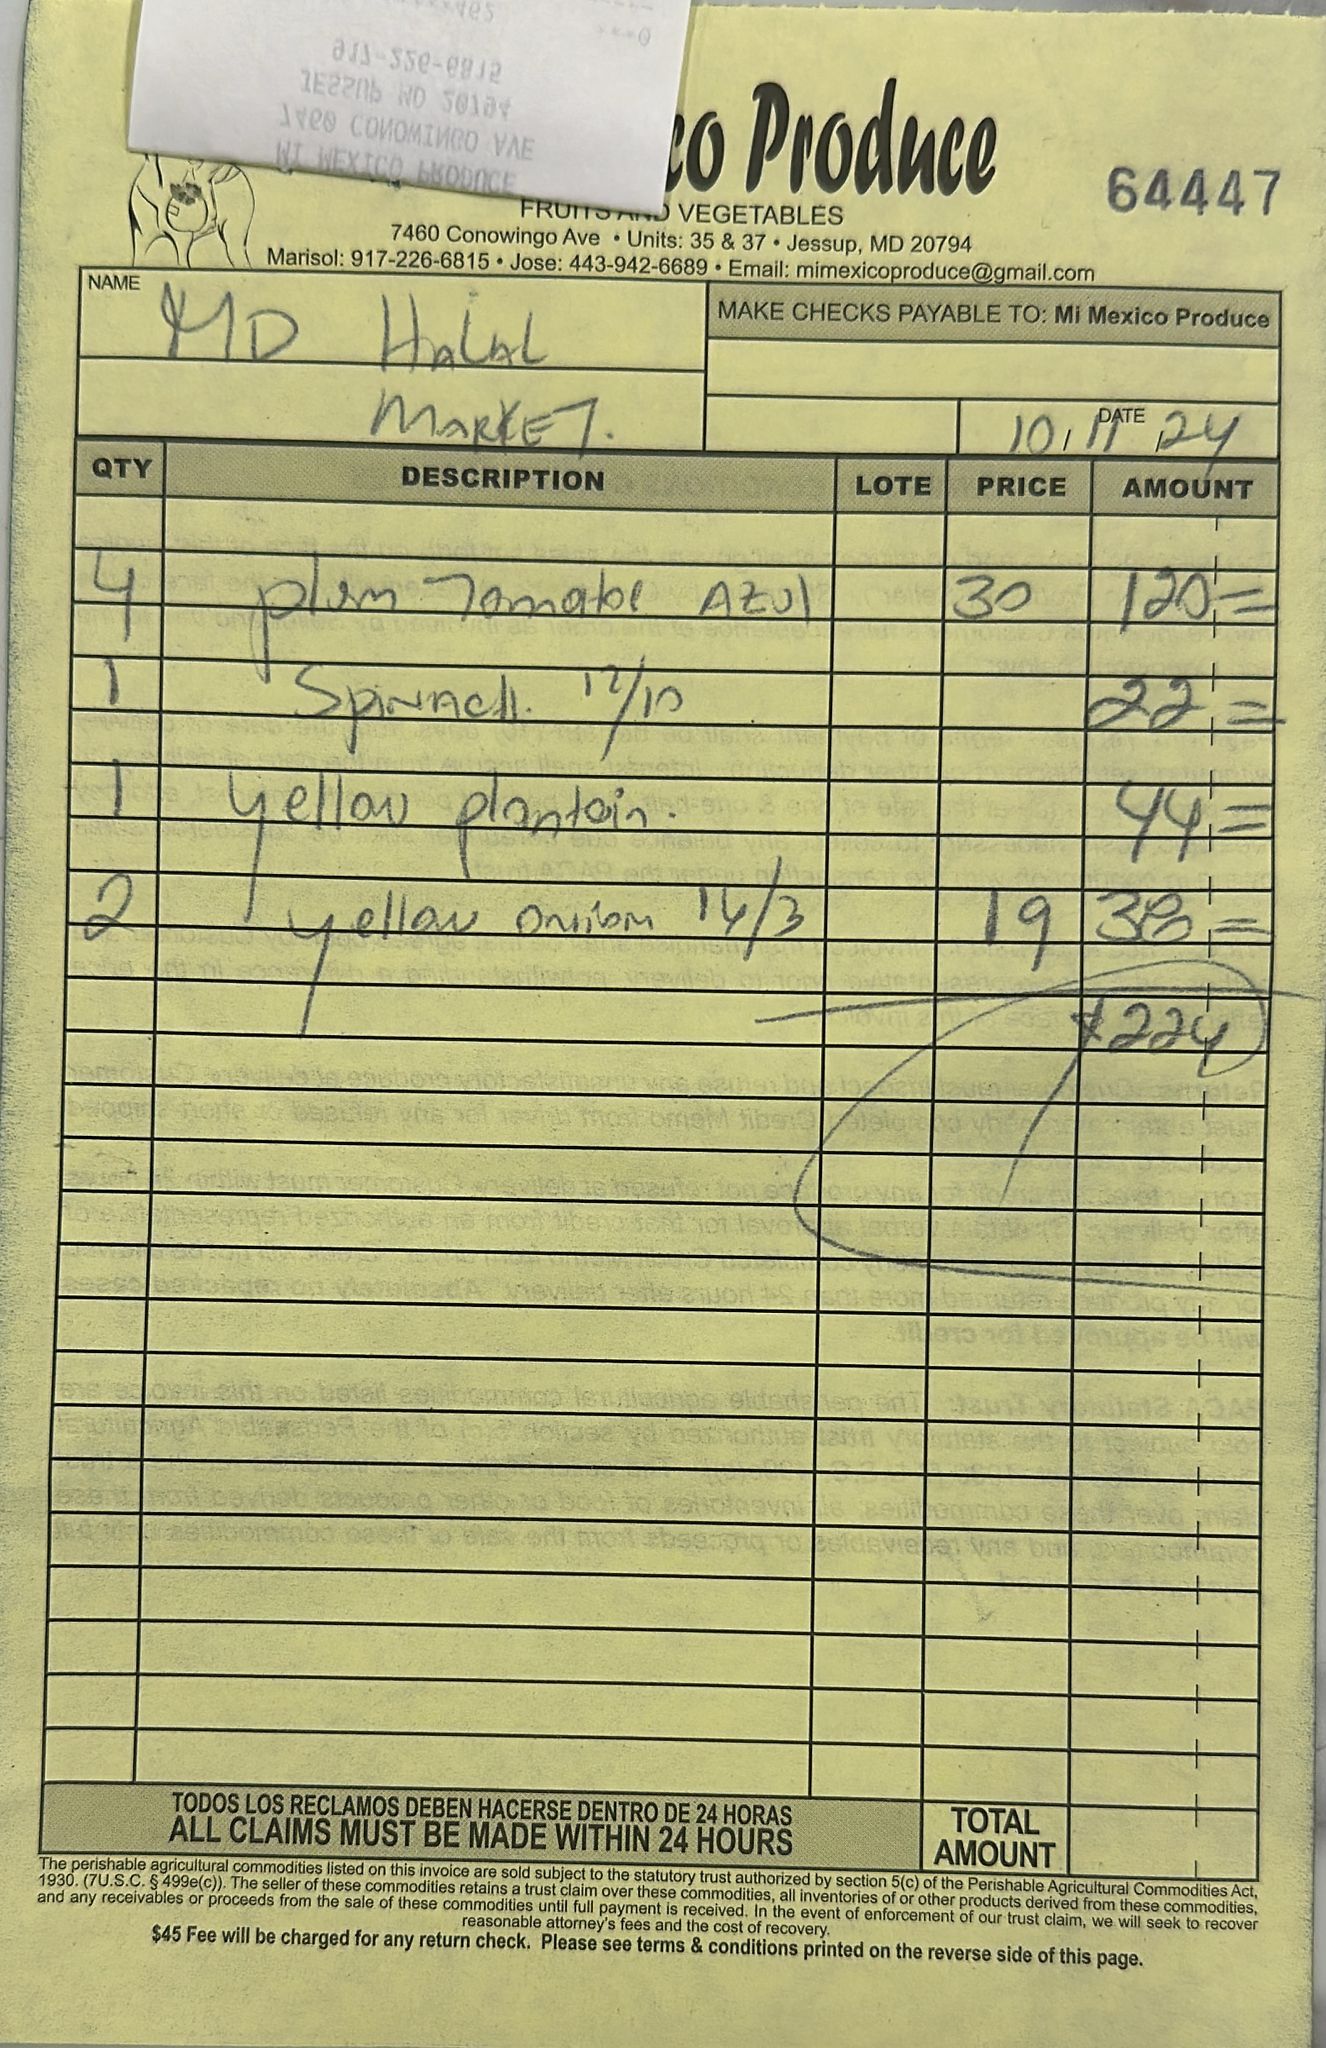 917-226-6815
JESSUP MD 20794
7460 CONOWINGO AVE
MI MEXICO PRODUCE
co Produce
64447
FRUITS AND VEGETABLES
7460 Conowingo Ave • Units: 35 & 37 • Jessup, MD 20794
Marisol: 917-226-6815 • Jose: 443-942-6689 • Email: mimexicoproduce@gmail.com
NAME
MD HALAL
MARKET.
MAKE CHECKS PAYABLE TO: Mi Mexico Produce
DATE
10, 11, 24
QTY DESCRIPTION LOTE PRICE AMOUNT
4 plum Tomatoe AZUl 30 120=
1 SpiNAch. 12/10 22=
1 yellow plantain. 44=
2 yellow onion 14/3 19 38=
$224
TODOS LOS RECLAMOS DEBEN HACERSE DENTRO DE 24 HORAS
ALL CLAIMS MUST BE MADE WITHIN 24 HOURS
TOTAL
AMOUNT
The perishable agricultural commodities listed on this invoice are sold subject to the statutory trust authorized by section 5(c) of the Perishable Agricultural Commodities Act,
1930. (7U.S.C. § 499e(c)). The seller of these commodities retains a trust claim over these commodities, all inventories of or other products derived from these commodities,
and any receivables or proceeds from the sale of these commodities until full payment is received. In the event of enforcement of our trust claim, we will seek to recover
reasonable attorney's fees and the cost of recovery.
$45 Fee will be charged for any return check. Please see terms & conditions printed on the reverse side of this page.